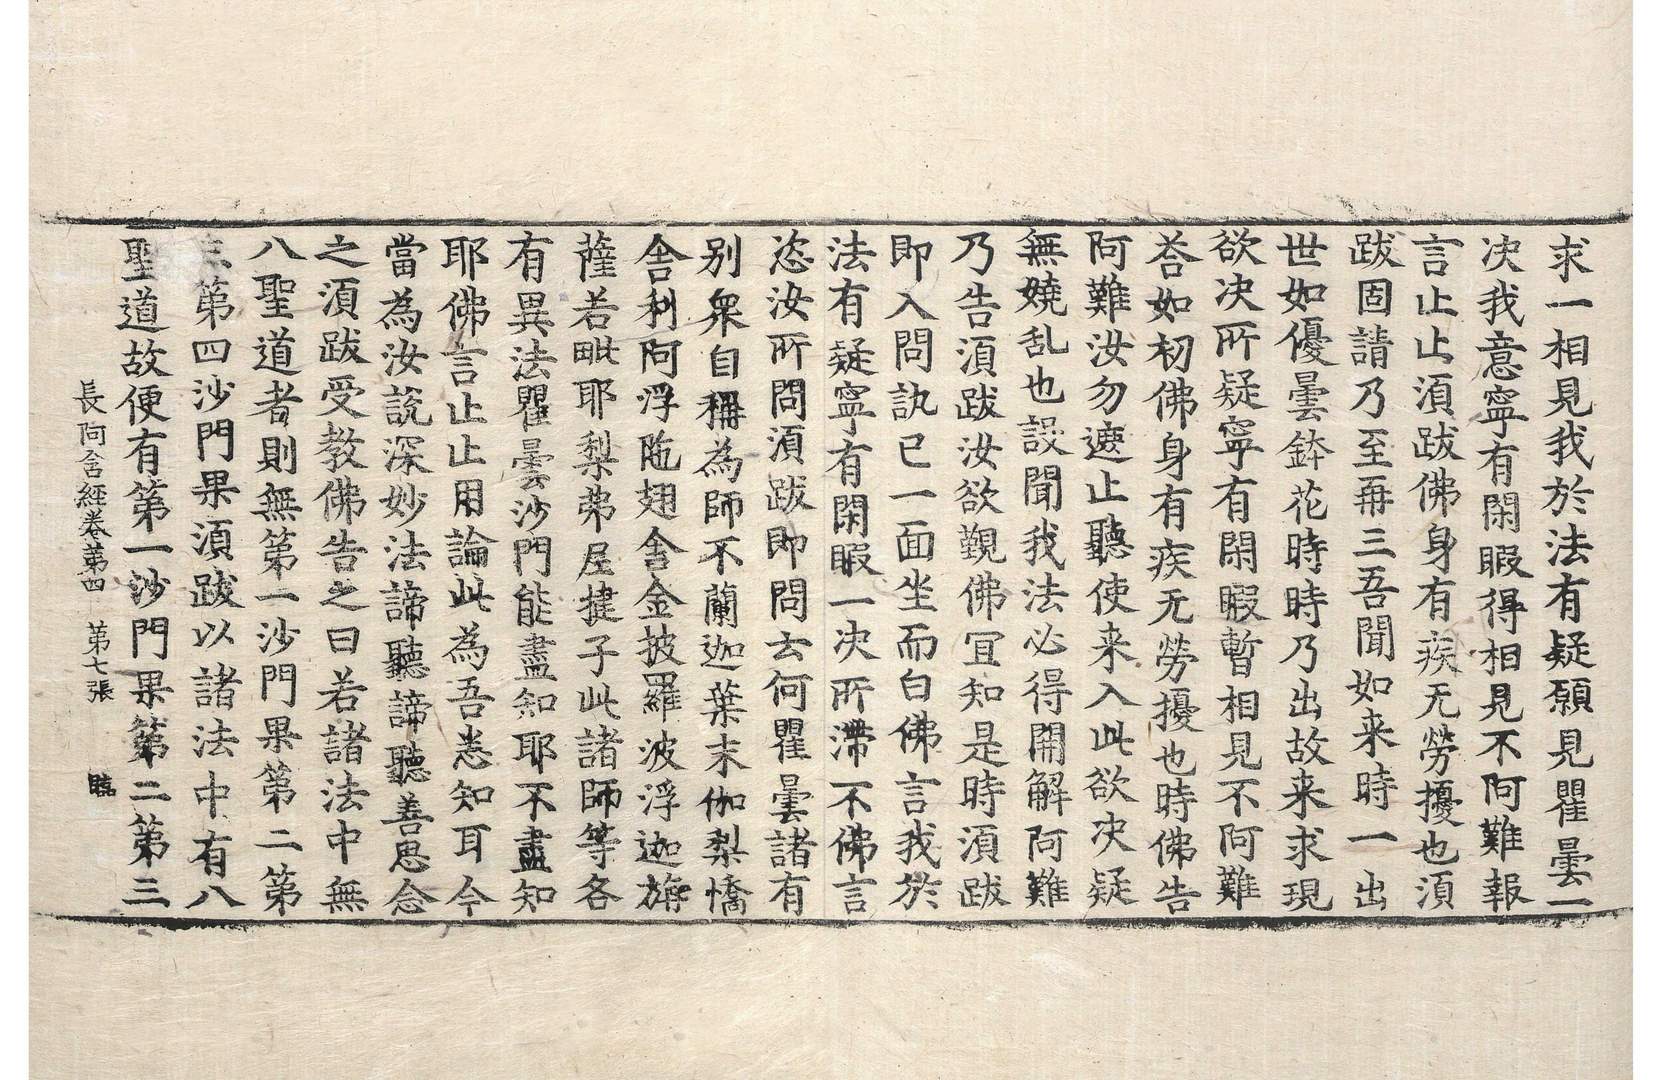 求一相見我於法有疑願見瞿曇一
决我意寧有閑暇得相見不阿難報
言止止湏跋佛身有疾无勞擾也湏
跋固請乃至再三吾聞如来時一出
世如優曇鉢花時時乃出故来求現
欲决所疑寧有閑暇暫相見不阿難
荅如初佛身有疾无勞擾也時佛告
阿難汝勿遮止聽使来入此欲决疑
無嬈乱也設聞我法必得開解阿難
乃告湏跋汝欲覲佛冝知是時湏跋
即入問訊已一面坐而白佛言我於
法有疑寧有閑暇一决所滯不佛言
恣汝所問湏跋即問云何瞿曇諸有
别衆自稱為師不蘭迦葉末伽梨憍
舍利阿浮陁翅舍金披羅波浮迦旃
薩若毗耶梨弗尼揵子此諸師等各
有異法瞿曇沙門能盡知耶不盡知
耶佛言止止用論此為吾悉知耳今
當為汝說深妙法諦聽諦聽善思念
之湏跋受教佛告之曰若諸法中無
八聖道者則無第一沙門果第二第
三第四沙門果湏跋以諸法中有八
聖道故便有第一沙門果第二第三
長阿含經卷第四　第七張　臨